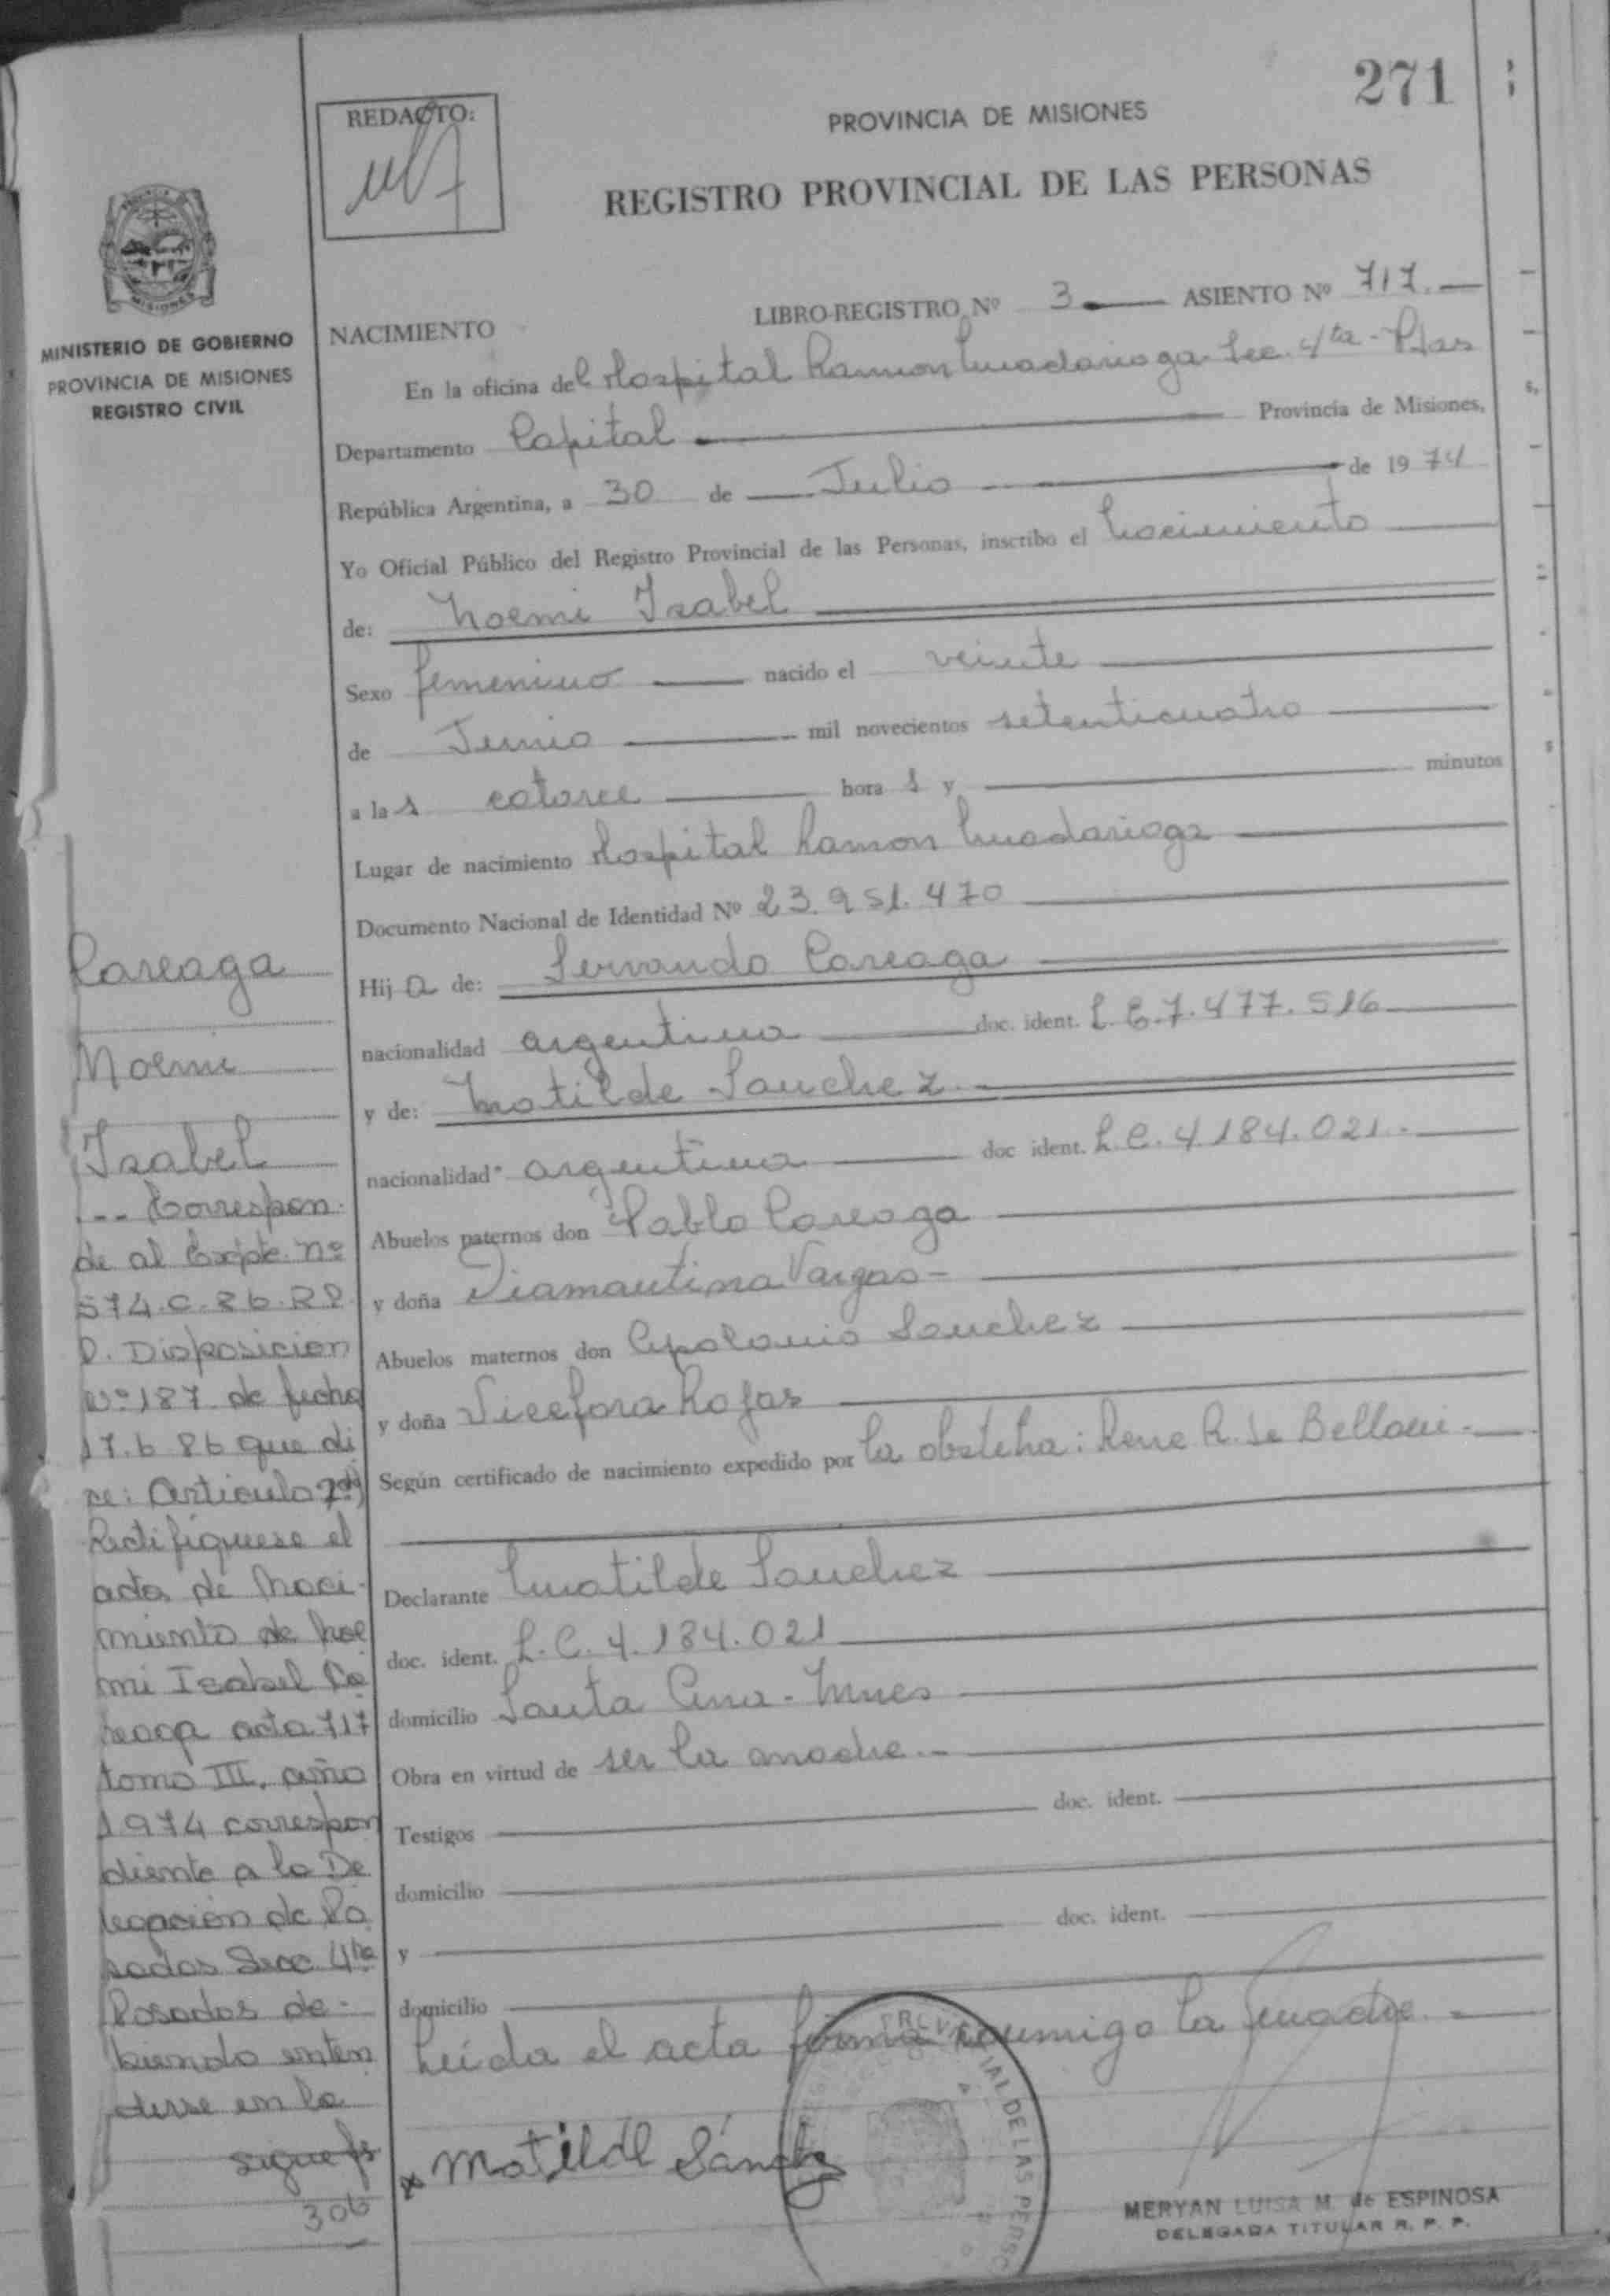 271
REDACTO:
PROVINCIA DE MISIONES
REGISTRO PROVINCIAL DE LAS PERSONAS
MISIONES
MINISTERIO DE GOBIERNO
PROVINCIA DE MISIONES
REGISTRO CIVIL
NACIMIENTO
LIBRO-REGISTRO Nº 3 ASIENTO Nº 717.
En la oficina del Hospital Ramon Madariaga Sec. 4ta - Pdas
Departamento Capital Provincia de Misiones,
República Argentina, a 30 de Julio de 1974
Yo Oficial Público del Registro Provincial de las Personas, inscribo el Nacimiento
de: Noemi Isabel
Sexo femenino nacido el veinte
de Junio mil novecientos setenticuatro
a las catorce horas y minutos
Lugar de nacimiento Hospital Ramon Madariaga
Documento Nacional de Identidad Nº 23.951.470
Hija de: Servando Careaga
nacionalidad argentina doc. ident. L.E.7.477.516
y de: Matilde Sanchez
nacionalidad argentina doc ident. L.C.4.184.021.
Abuelos paternos don Pablo Careaga
y doña Diamantina Vargas
Abuelos maternos don Apolonio Sanchez
y doña Nicefora Rojas
Según certificado de nacimiento expedido por la obstetra: Rene R. de Belloni
Declarante Matilde Sanchez
doc. ident. L.C.4.184.021
domicilio Santa Ana - Mnes
Obra en virtud de ser la madre.
Testigos doc. ident.
domicilio
y doc. ident.
domicilio
Leida el acta firma conmigo la madre
x Matilde Sánchez
MERYAN LUISA M. de ESPINOSA
DELEGADA TITULAR R. P. P.
Careaga
Noemi
Isabel
--- Correspon-
de al Expte. nº
574.C.86.R.P.
P. Disposicion
Nº 187 de fecha
17.6.86 que di
ce: Articulo
Rectifiquese el
acta de Naci-
miento de Noe
mi Isabel Ca
reaga acta 717
tomo III, año
1974 correspon
diente a la De
legación de Po
sadas Secc. 4ta
Posadas de-
biendo enten
derse en la
sigue fs
306